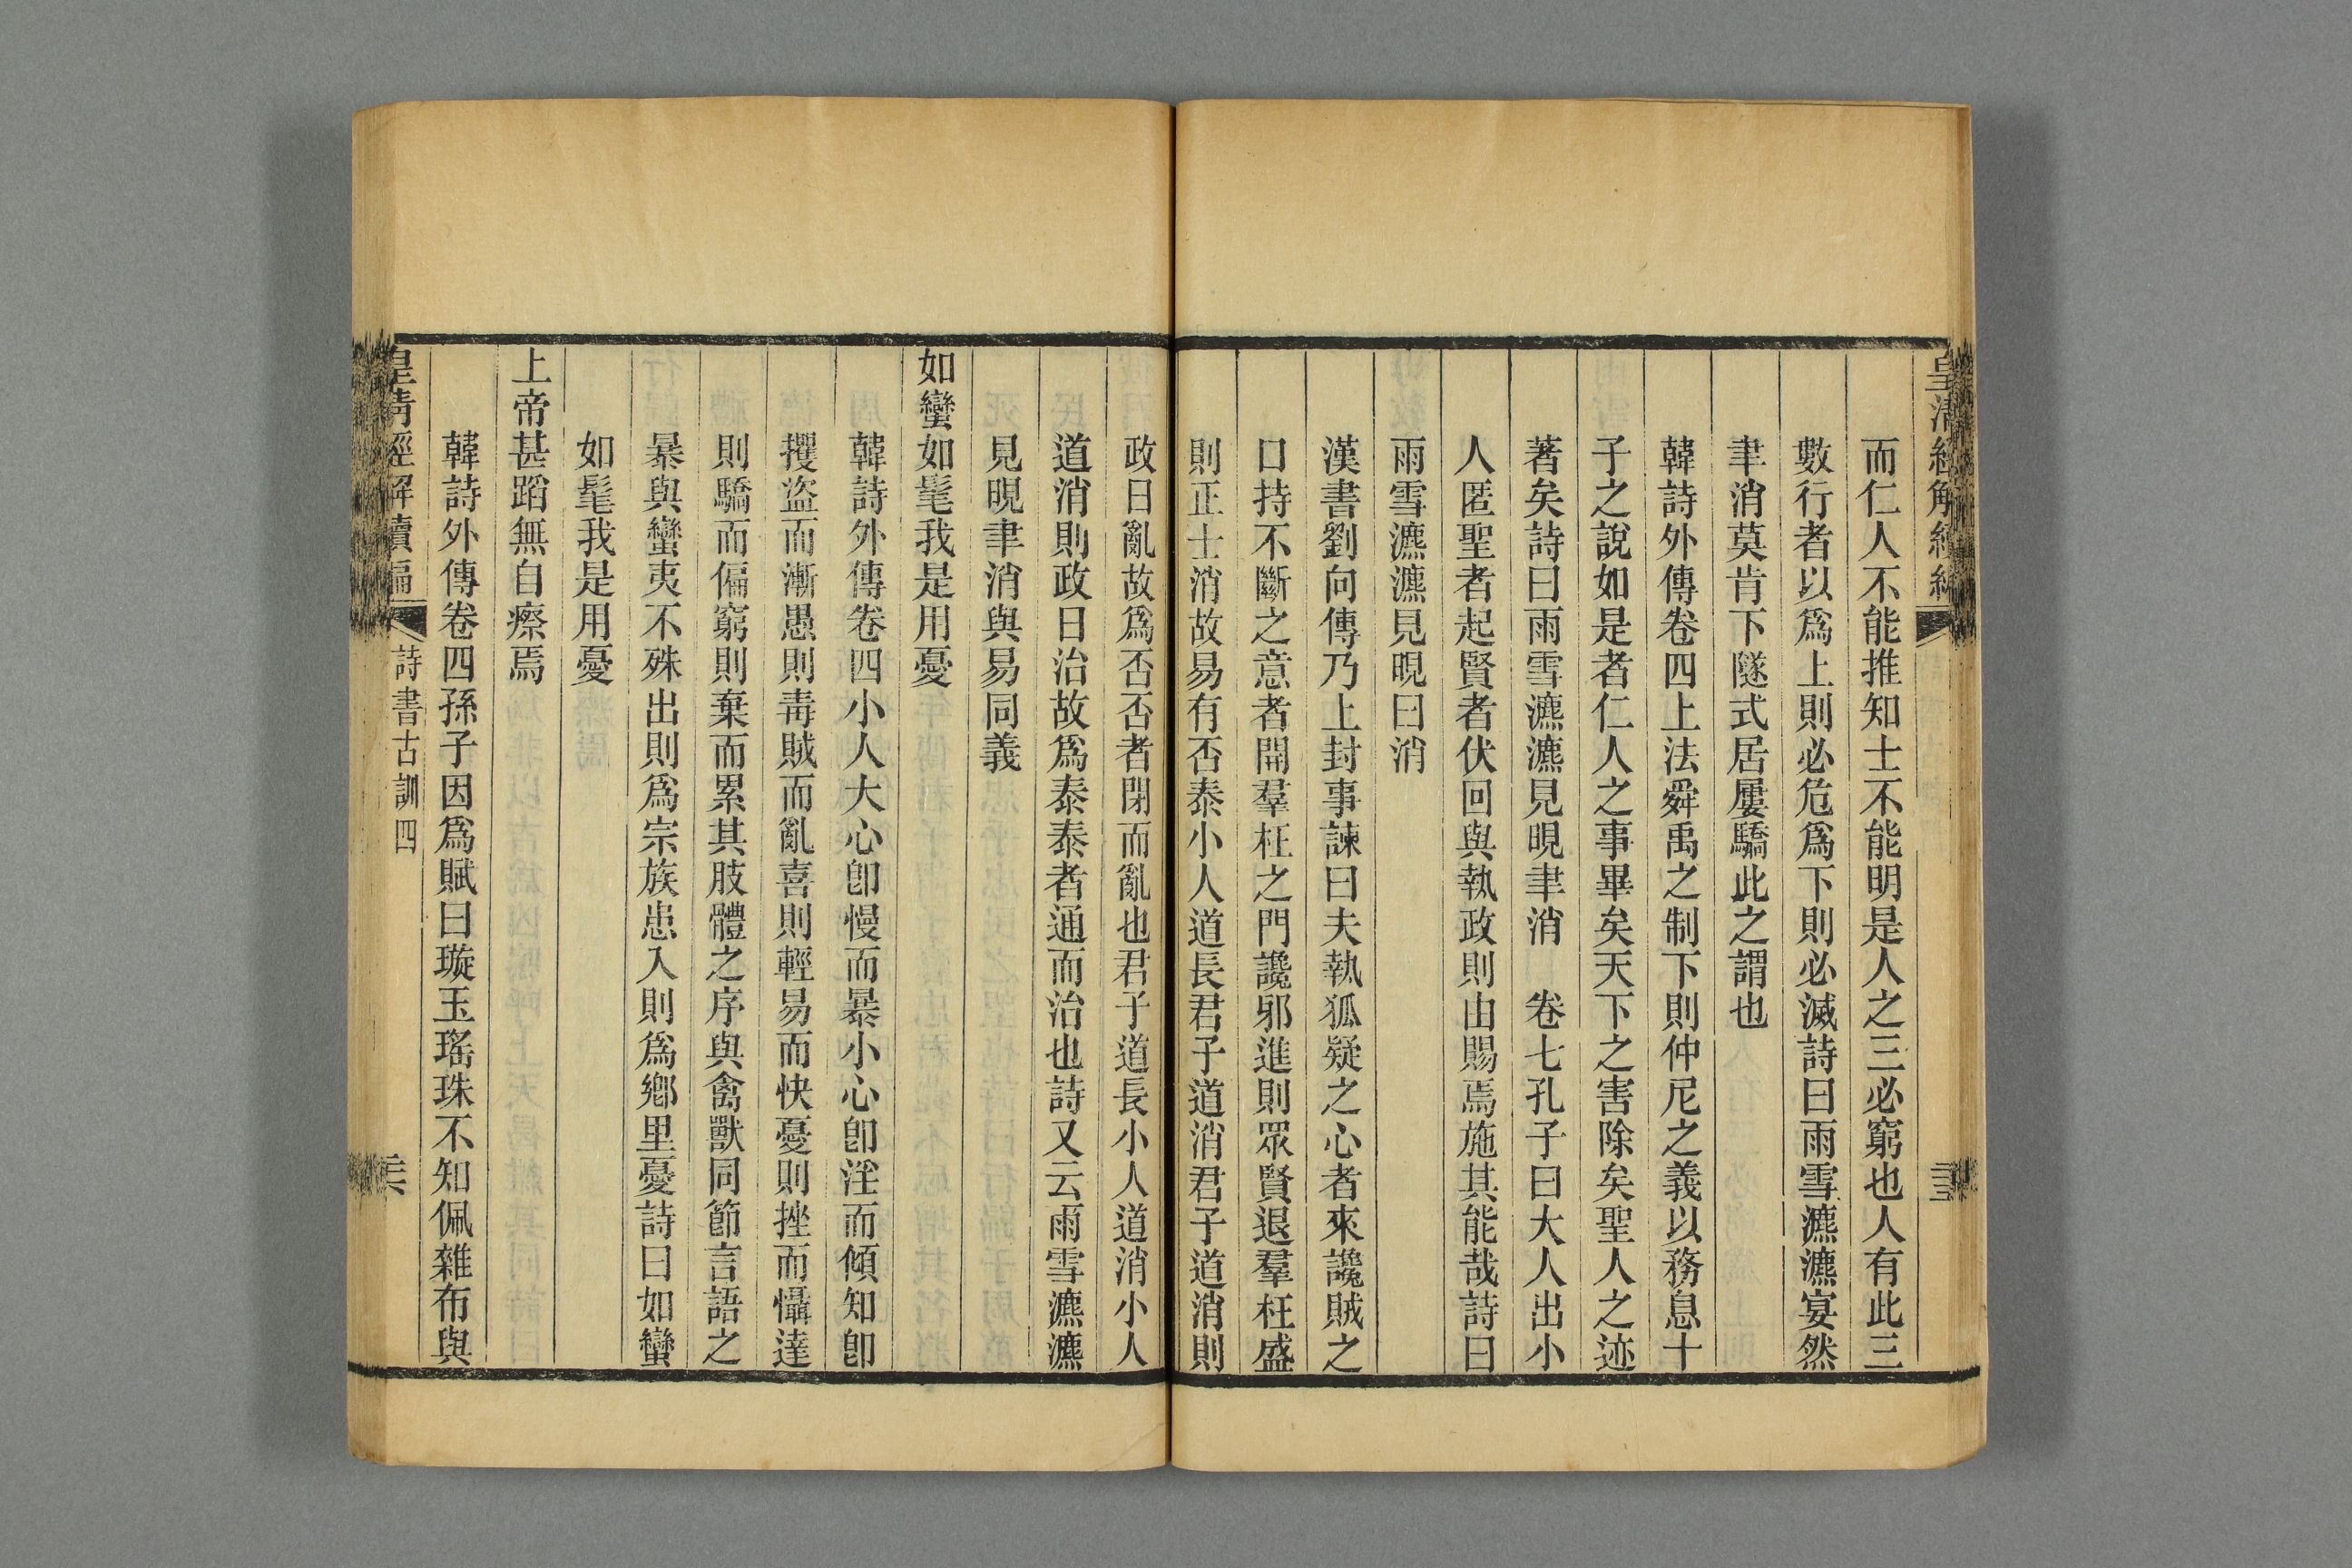 而仁人不能推知士不能明是人之三必窮也人有此三
數行者以爲上則必危爲下則必滅詩曰雨雪瀌瀌宴然
聿消莫肯下隧式居屢驕此之謂也
韓詩外傳卷四上法舜禹之制下則仲尼之義以務息十
子之說如是者仁人之事畢矣天下之害除矣聖人之迹
著矣詩曰雨雪瀌瀌見晛聿消　卷七孔子曰大人出小
人匿聖者起賢者伏回與執政則由賜焉施其能哉詩曰
雨雪瀌瀌見晛曰消
漢書劉向傳乃上封事諫曰夫執狐疑之心者來讒賊之
口持不斷之意者開羣枉之門讒邪進則眾賢退羣枉盛
則正士消故易有否泰小人道長君子道消君子道消則
政日亂故爲否否者閉而亂也君子道長小人道消小人
道消則政日治故爲泰泰者通而治也詩又云雨雪瀌瀌
見晛聿消與易同義
如蠻如髦我是用憂
韓詩外傳卷四小人大心卽慢而暴小心卽淫而傾知卽
攫盜而漸愚則毒賊而亂喜則輕易而快憂則挫而懾達
則驕而偏窮則棄而累其肢體之序與禽獸同節言語之
暴與蠻夷不殊出則爲宗族患入則爲鄉里憂詩曰如蠻
如髦我是用憂
上帝甚蹈無自瘵焉
韓詩外傳卷四孫子因爲賦曰璇玉瑤珠不知佩雜布與
皇清經解續編
詩書古訓四